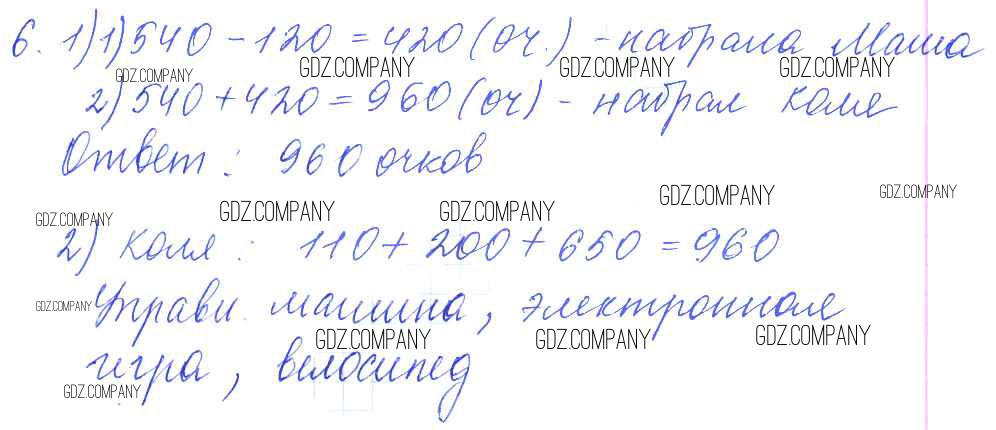 6. 1) 1) 540 - 120 = 420 (оч.) - набрала Маша
GDZ.COMPANY GDZ.COMPANY GDZ.COMPANY GDZ.COMPANY
2) 540 + 420 = 960 (оч) - набрал Коля
Ответ: 960 очков
GDZ.COMPANY GDZ.COMPANY GDZ.COMPANY GDZ.COMPANY GDZ.COMPANY
2) Коля: 110 + 200 + 650 = 960
GDZ.COMPANY Управл. машина, электронная
GDZ.COMPANY GDZ.COMPANY GDZ.COMPANY
игра, велосипед
GDZ.COMPANY